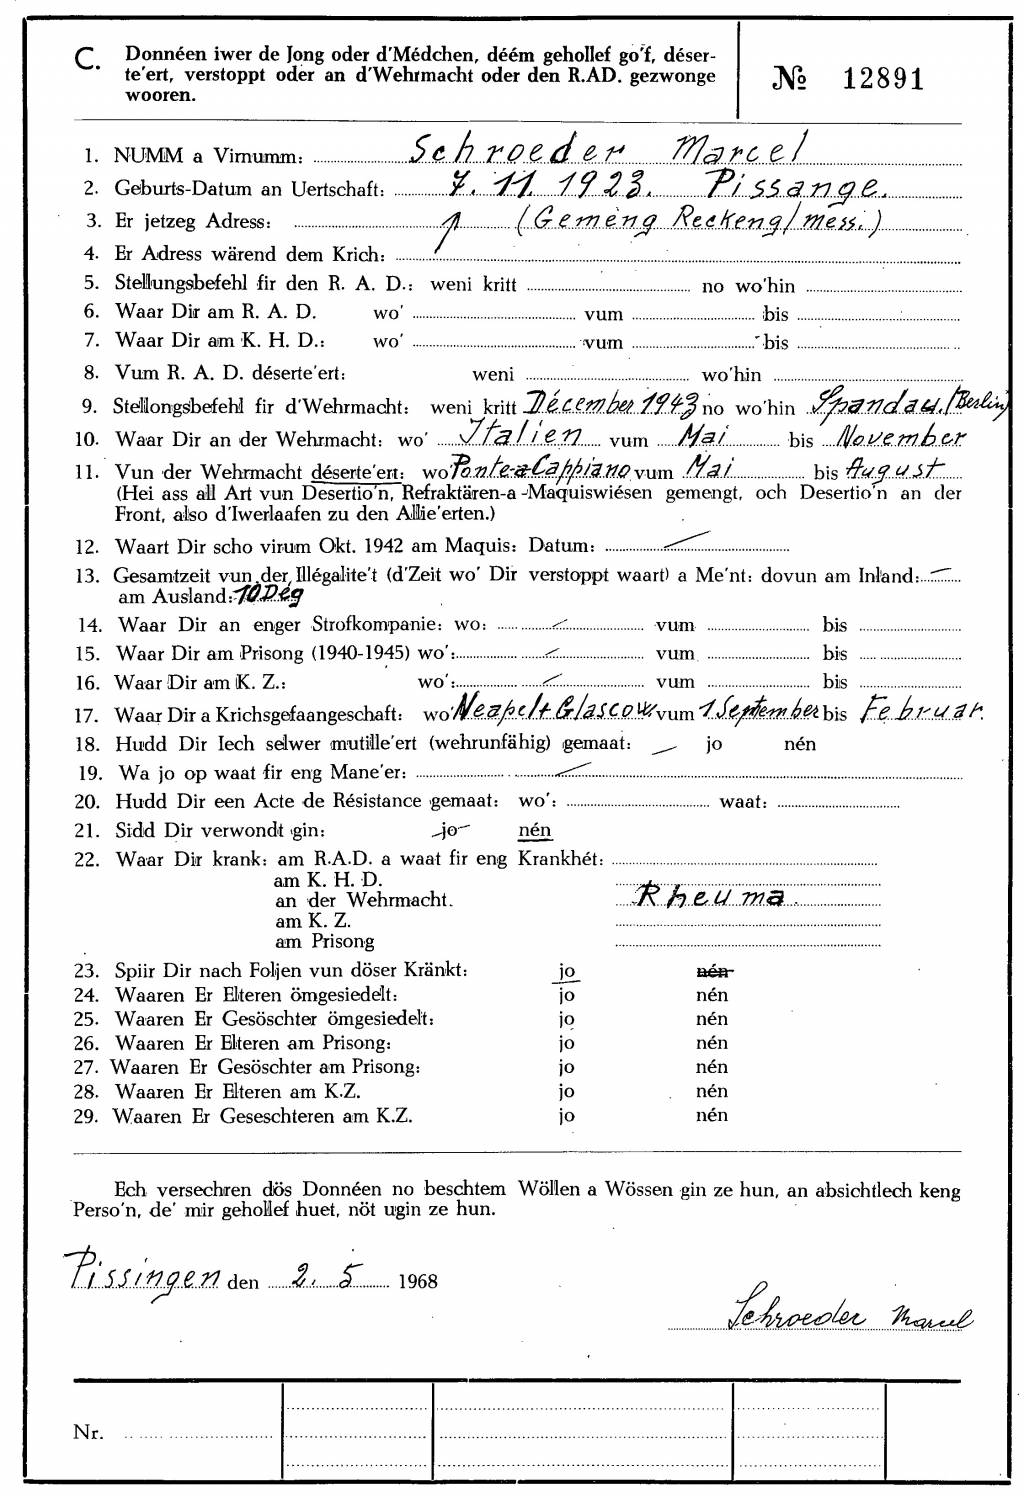 C. Donnéen iwer de Jong oder d'Médchen, déém gehollef go'f, déser-
te'ert, verstoppt oder an d'Wehrmacht oder den R.AD. gezwonge
wooren.
№ 12891
1. NUMM a Virnumm: Schroeder Marcel
2. Geburts-Datum an Uertschaft: 7. 11. 1923. Pissange.
3. Er jetzeg Adress: (Gemeng Reckeng/mess.)
4. Er Adress wärend dem Krich:
5. Stellungsbefehl fir den R. A. D.: weni kritt no wo'hin
6. Waar Dir am R. A. D. wo' vum bis
7. Waar Dir am K. H. D.: wo' vum bis
8. Vum R. A. D. déserte'ert: weni wo'hin
9. Stellongsbefehl fir d'Wehrmacht: weni kritt Décember 1943 no wo'hin Spandau/(Berlin)
10. Waar Dir an der Wehrmacht: wo' Italien vum Mai bis November
11. Vun der Wehrmacht déserte'ert: wo' Ponte-a Cappiano vum Mai bis August
(Hei ass all Art vun Desertio'n, Refraktären-a-Maquiswiésen gemengt, och Desertio'n an der
Front, also d'Iwerlaafen zu den Allie'erten.)
12. Waart Dir scho virum Okt. 1942 am Maquis: Datum:
13. Gesamtzeit vun der Illégalite't (d'Zeit wo' Dir verstoppt waart) a Me'nt: dovun am Inland:
am Ausland: 10 Dég
14. Waar Dir an enger Strofkompanie: wo: vum bis
15. Waar Dir am Prisong (1940-1945) wo': vum bis
16. Waar Dir am K. Z.: wo': vum bis
17. Waar Dir a Krichsgefaangeschaft: wo' Neapel+ Glascow. vum 1 September bis Februar.
18. Hudd Dir Iech selwer mutille'ert (wehrunfähig) gemaat: jo nén
19. Wa jo op waat fir eng Mane'er:
20. Hudd Dir een Acte de Résistance gemaat: wo': waat:
21. Sidd Dir verwondt gin: jo nén
22. Waar Dir krank: am R.A.D. a waat fir eng Krankhét:
am K. H. D.
an der Wehrmacht. Rheuma.
am K. Z.
am Prisong
23. Spiir Dir nach Foljen vun döser Kränkt: jo nén
24. Waaren Er Elteren ömgesiedelt: jo nén
25. Waaren Er Gesöschter ömgesiedelt: jo nén
26. Waaren Er Elteren am Prisong: jo nén
27. Waaren Er Gesöschter am Prisong: jo nén
28. Waaren Er Elteren am K.Z. jo nén
29. Waaren Er Geseschteren am K.Z. jo nén
Ech versechren dös Donnéen no beschtem Wöllen a Wössen gin ze hun, an absichtlech keng
Perso'n, de' mir gehollef huet, nöt ugin ze hun.
Pissingen den 2. 5 1968
Schroeder Marcel
Nr.